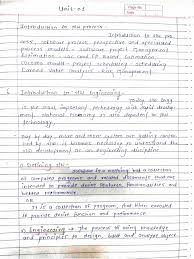 Unit-01
Page No.
Date
Introduction to s/w process :
Introduction to the pro-
cess, software process, perspective and specialized
process models - software project
and FP based Estimation,
COCOMO model - project scheduling : scheduling
Earned value analysis - Risk management.
Introduction to s/w Engineering :
Today
is the most important technology with rapid devel-
opment, national economy is also dependent to this
technology.
Day by day more and more system are getting contro-
lled by
also it becomes necessary to understand the
development as an engineering discipline
Defining s/w :
Software is a nothing but a collection
of computer programs and related documents that are
intended to provide desire features, functionalities and
better performance.
OR
It is a collection of program, that when executed
it provide desire function and performance
Engineering : is the process of using knowledge
and principles to design, built and analyse object